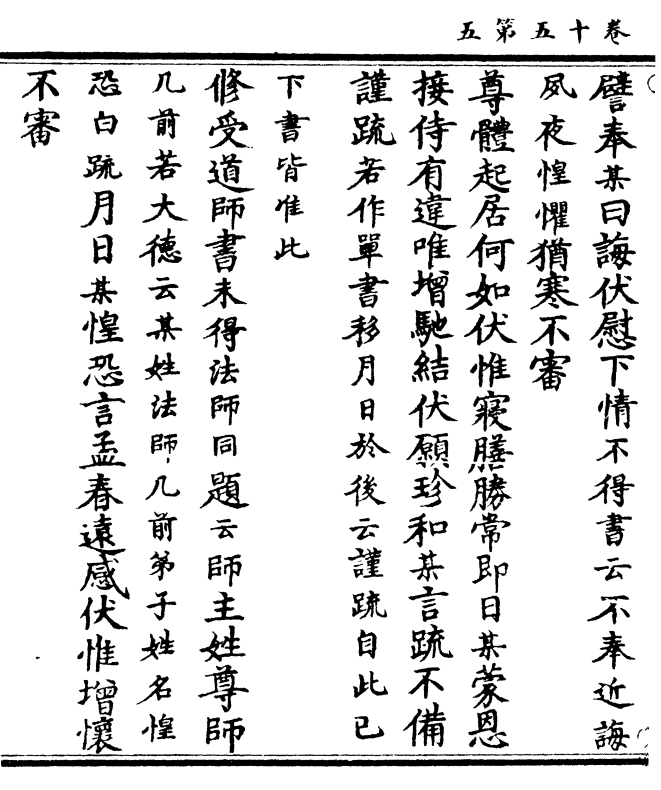 卷十五第五
譬奉某曰誨伏慰下情不得書云不奉近誨
夙夜惶懼猶寒不審
尊體起居何如伏惟寢膳勝常即日某蒙恩
接侍有違唯增馳結伏願珍和某言疏不備
謹疏若作單書移月日於後云謹疏自此已
下書皆准此
修受道師書未得法師同題云師主姓尊師
几前若大德云某姓法師几前弟子姓名惶
恐白疏月日某惶恐言孟春遠感伏惟增懷
不審